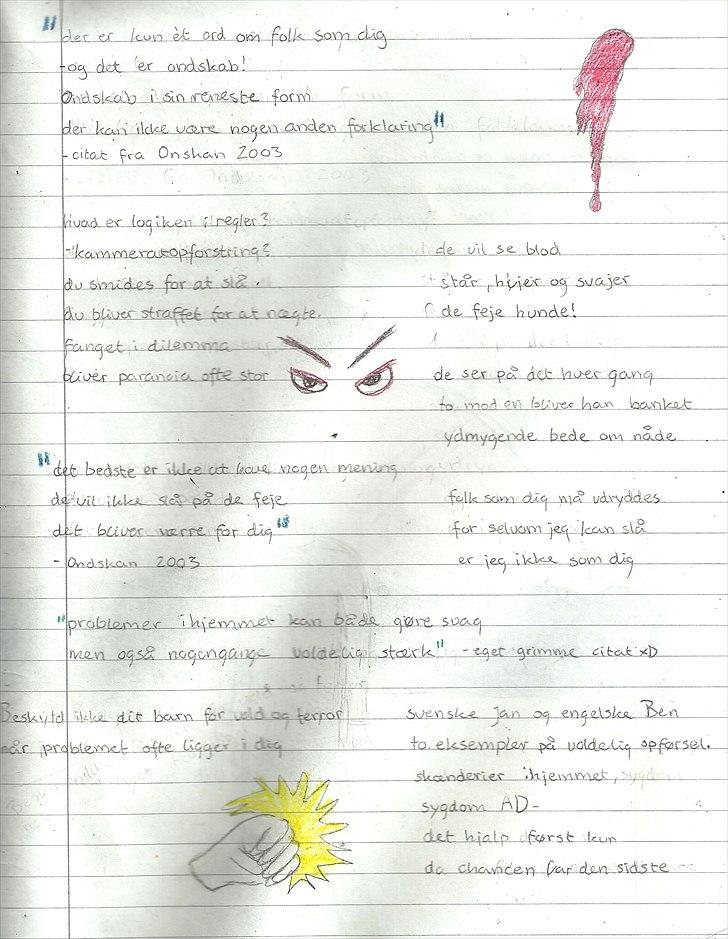 "der er kun èt ord om folk som dig
-og det er ondskab!
Ondskab i sin reneste form
der kan ikke være nogen anden forklaring"
-citat fra Onskan 2003
hvad er logiken i regler?
-"kammeratopforstring?
du smides for at slå.
du bliver straffet for at nægte.
fanget i dilemma
bliver paranoia ofte stor
de vil se blod
står, hujer og svajer
de feje hunde!
de ser på det hver gang
to mod en bliver han banket
ydmygende bede om nåde
"det bedste er ikke at have nogen mening
de vil ikke slå på de feje
det bliver værre for dig"
- Ondskan 2003
folk som dig må udryddes
for selvom jeg kan slå
er jeg ikke som dig
"problemer i hjemmet kan både gøre svag
men også nogengange voldelig stærk" -eget grimme citat xD
Beskyld ikke dit barn for vold og terror
når problemet ofte ligger i dig
svenske Jan og engelske Ben
to eksempler på voldelig opførsel.
skænderier i hjemmet,
sygdom AD-
det hjalp først kun
da chancen var den sidste